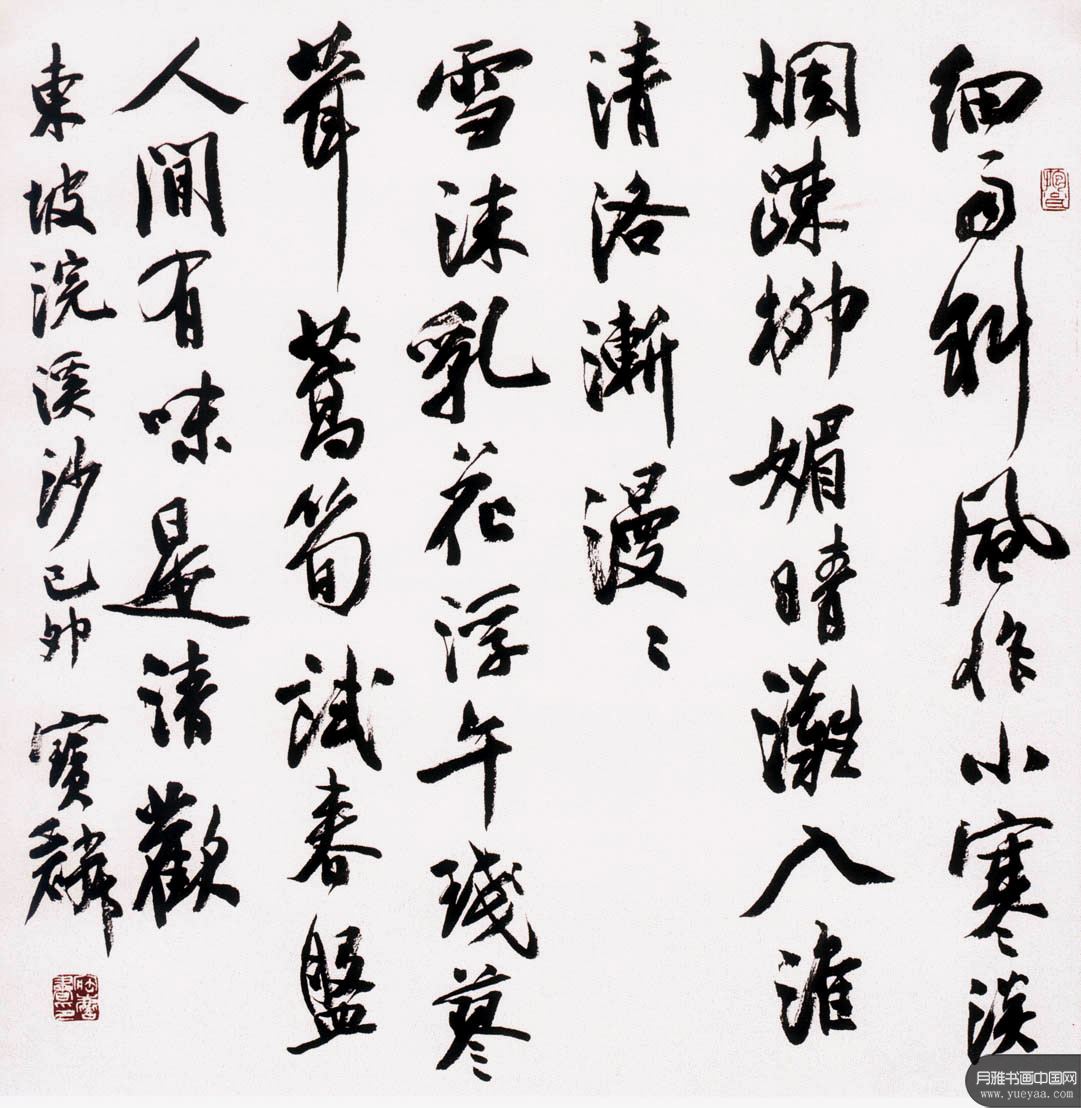 細雨斜風作小寒淡
烟疎柳媚晴灘入淮
清洛漸漫〻
雪沫乳花浮午琖蓼
茸蒿筍試春盤
人間有味是清歡
東坡浣溪沙己卯 寶麟
月雅书画中国网
www.yueyaa.com